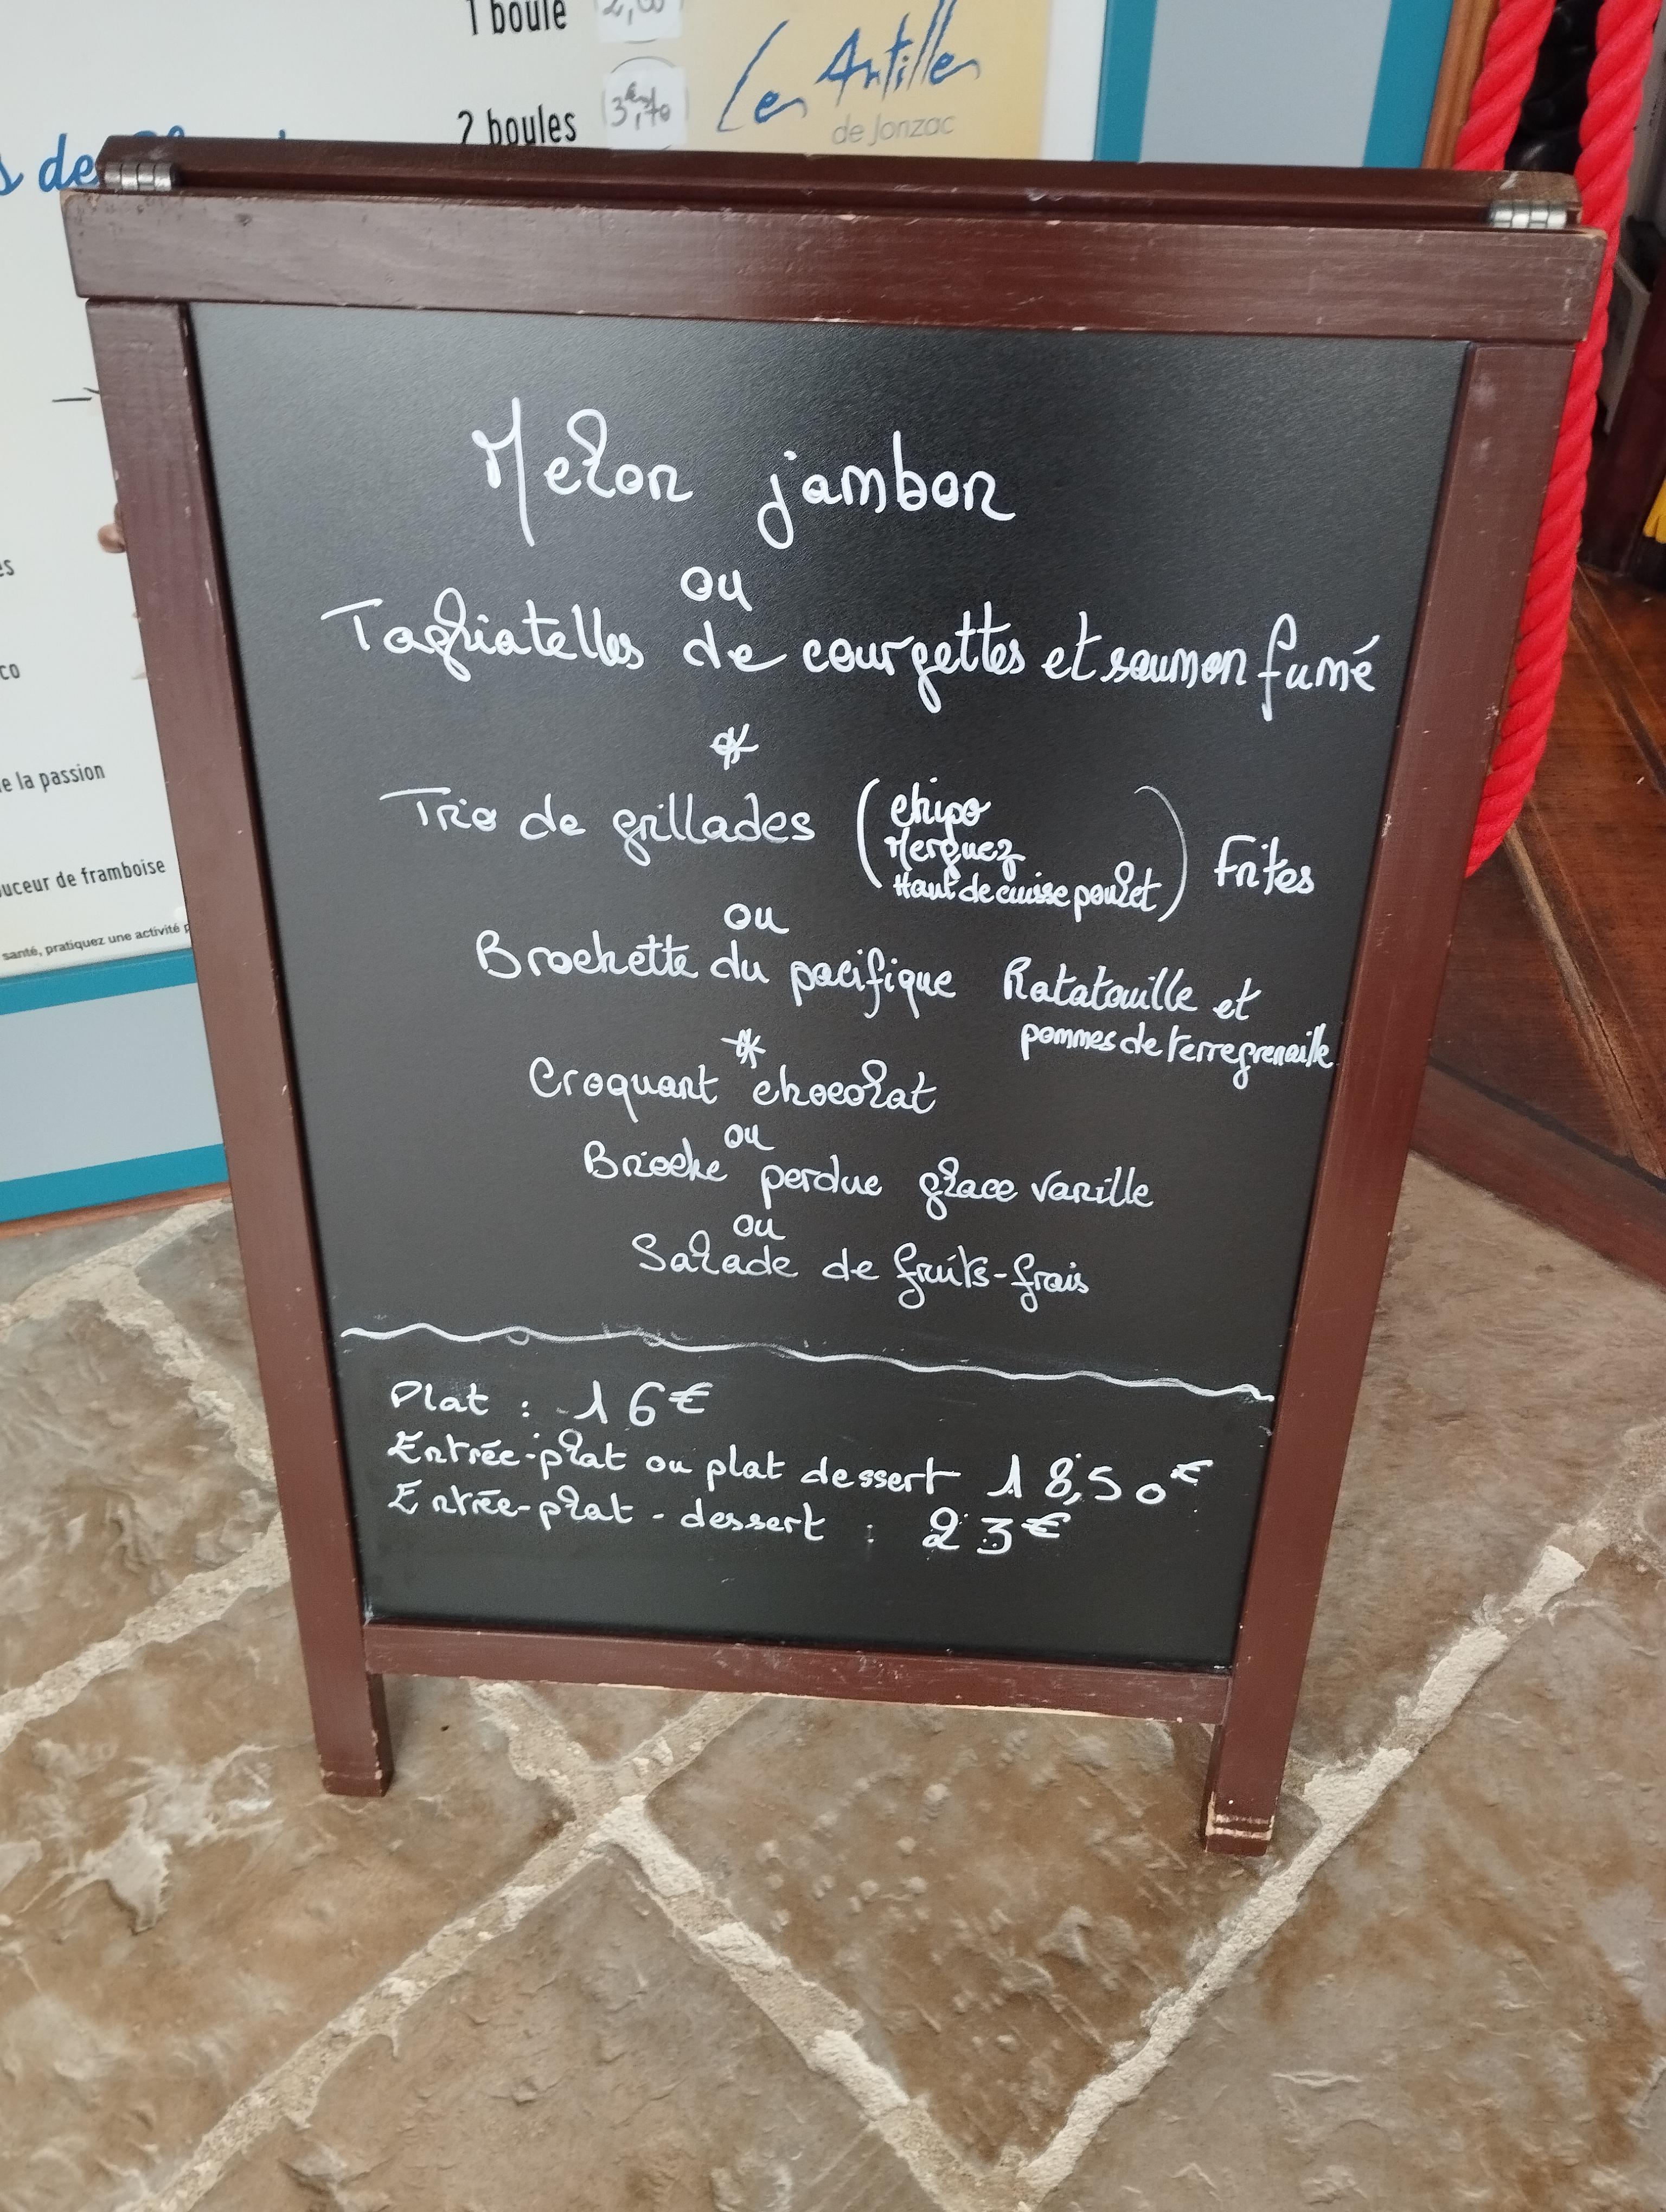 1 boule
2 boules 3€,70
Les Antilles
de Jonzac
s de
es
co
e la passion
uceur de framboise
santé, pratiquez une activité p
Melon jambon
ou
Tagliatelles de courgettes et saumon fumé
*
Trio de grillades (chipo
Merguez
Haut de cuisse poulet) Frites
ou
Brochette du pacifique Ratatouille et
pommes de terre grenaille
*
Croquant chocolat
ou
Brioche perdue glace vanille
ou
Salade de fruits-frais
Plat : 16€
Entrée-plat ou plat dessert 18,50€
Entrée-plat-dessert : 23€